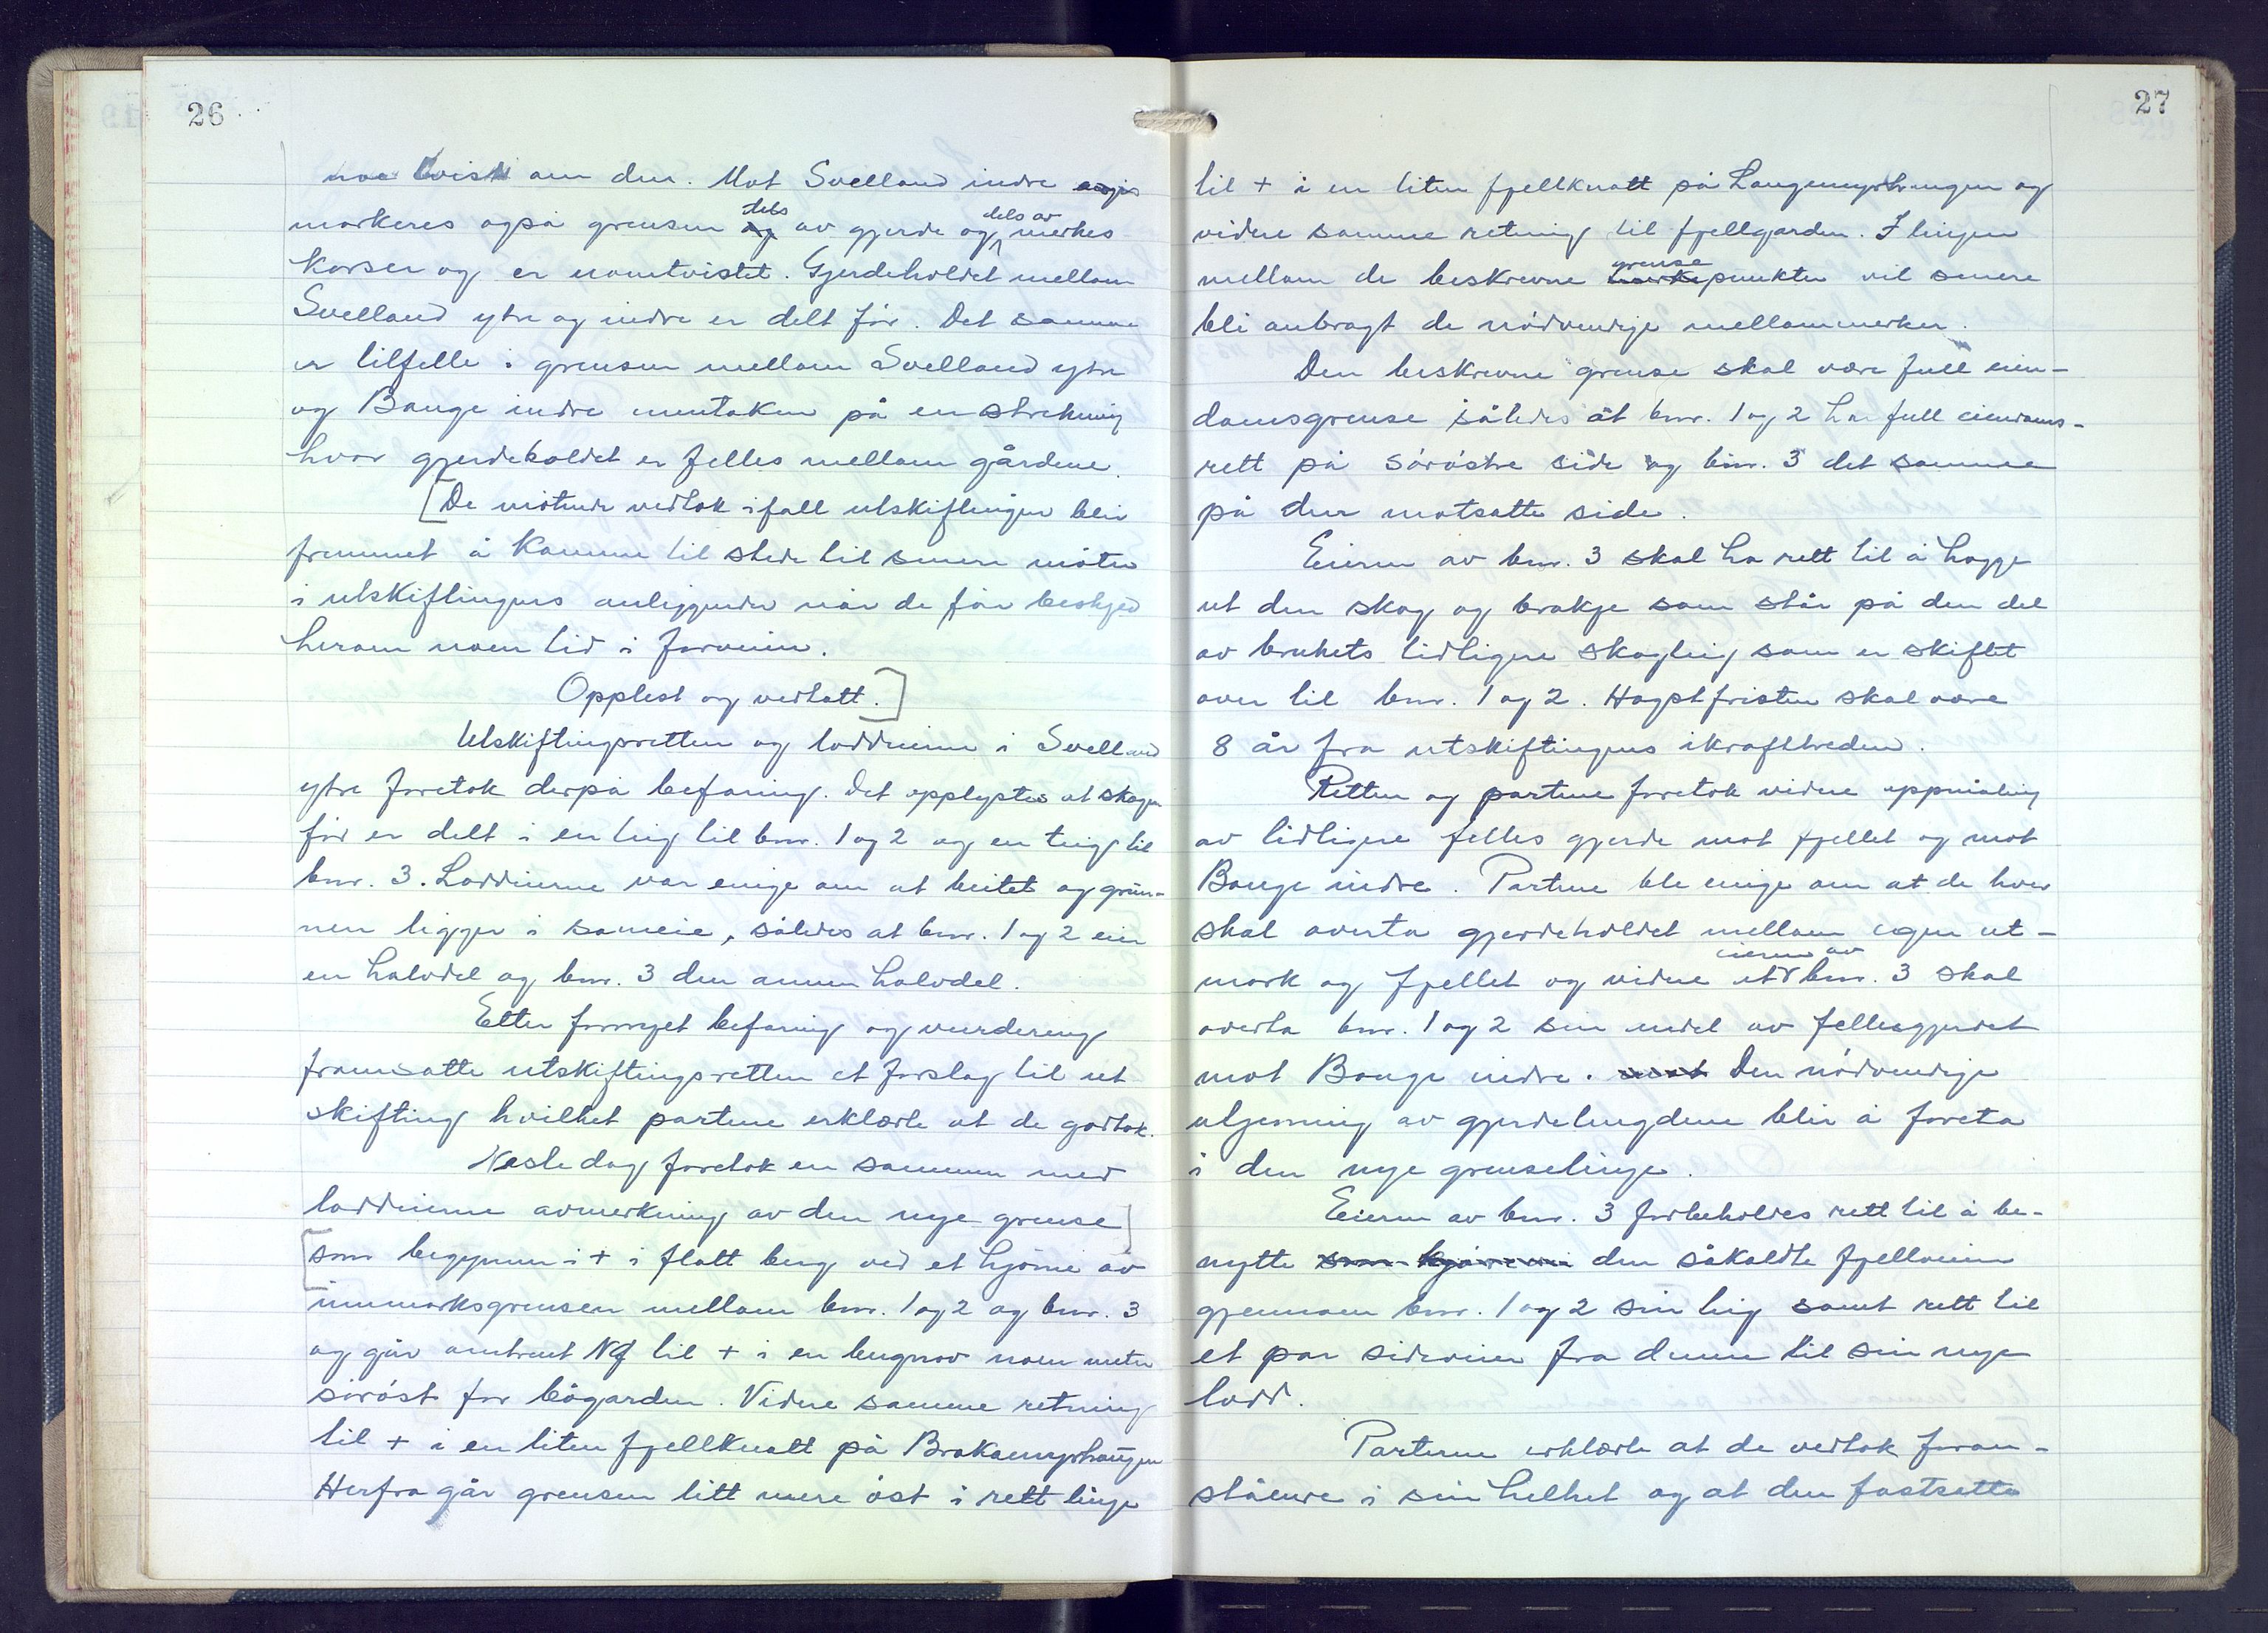 26
noe tvist om den. Mot Svelland indre
markeres også grensen dels av gjerde og dels av merkes
korser og er uomtvistet. Gjerdeholdet mellom
Svelland ytre og indre er delt før. Det samme
er tilfelle i grensen mellom Svelland ytre
og Bauge indre unntaken på en strekning
hvor gjerdeholdet er felles mellom gårdene.
[De møtende vedtok ifall utskiftingen blir
fremmet å komme til stede til senere møter
i utskiftingens anliggender når de får beskjed
herom noen tid i forveien.
Opplest og vedtatt.]
Utskiftingsretten og loddeierne i Svelland
ytre foretok derpå befaring. Det opplystes at skogen
før er delt i en teig til bnr. 1 og 2 og en teig til
bnr. 3. Loddeierne var enige om at beitet og grun-
nen ligger i sameie, således at bnr. 1 og 2 eier
en halvdel og bnr. 3 den annen halvdel.
Etter fornyet befaring og vurdering
framsatte utskiftingsretten et forslag til ut
skifting hvilket partene erklærte at de godtok.
Neste dag foretok en sammen med
loddeierne avmerkning av den nye grense]
[som begynner i + i flatt berg ved et hjørne av
innmarksgrensen mellom bnr. 1 og 2 og bnr. 3
og går omtrent NØ til + i en bergnov noen meter
sørøst for bøgarden. Videre samme retning
til + i en liten fjellknatt på Brakamyrhaugen
Herfra går grensen litt mere øst i rett linje
27
til + i en liten fjellknatt på Langemyrhaugen og
videre samme retning til fjellgarden. I linjen
mellom de beskrevne grensepunkter vil senere
bli anbragt de nødvendige mellommerker.
Den beskrevne grense skal være full eien-
domsgrense således at bnr. 1 og 2 har full eiendoms-
rett på sørøstre side og bnr. 3 det samme
på den motsatte side.
Eieren av bnr. 3 skal ha rett til å hogge
ut den skog og brakje som står på den del
av brukets tidligere skogteig som er skiftet
over til bnr. 1 og 2. Hogstfristen skal være
8 år fra utskiftingens ikrafttreden.
Retten og partene foretok videre oppmåling
av tidligere felles gjerde mot fjellet og mot
Bauge indre. Partene ble enige om at de hver
skal overta gjerdeholdet mellom egen ut-
mark og fjellet og videre at eieren av bnr. 3 skal
overta bnr. 1 og 2 sin andel av fellesgjerdet
mot Bauge indre. mot Den nødvendige
utjevning av gjerdelengdene blir å foreta
i den nye grenselinje.
Eieren av bnr. 3 forbeholdes rett til å be-
nytte som kjørevei den såkaldte fjellveien
gjennom bnr. 1 og 2 sin teig samt rett til
et par sideveier fra denne til sin nye
lodd.
Partene erklærte at de vedtok foran-
stående i sin helhet og at den fastsatte